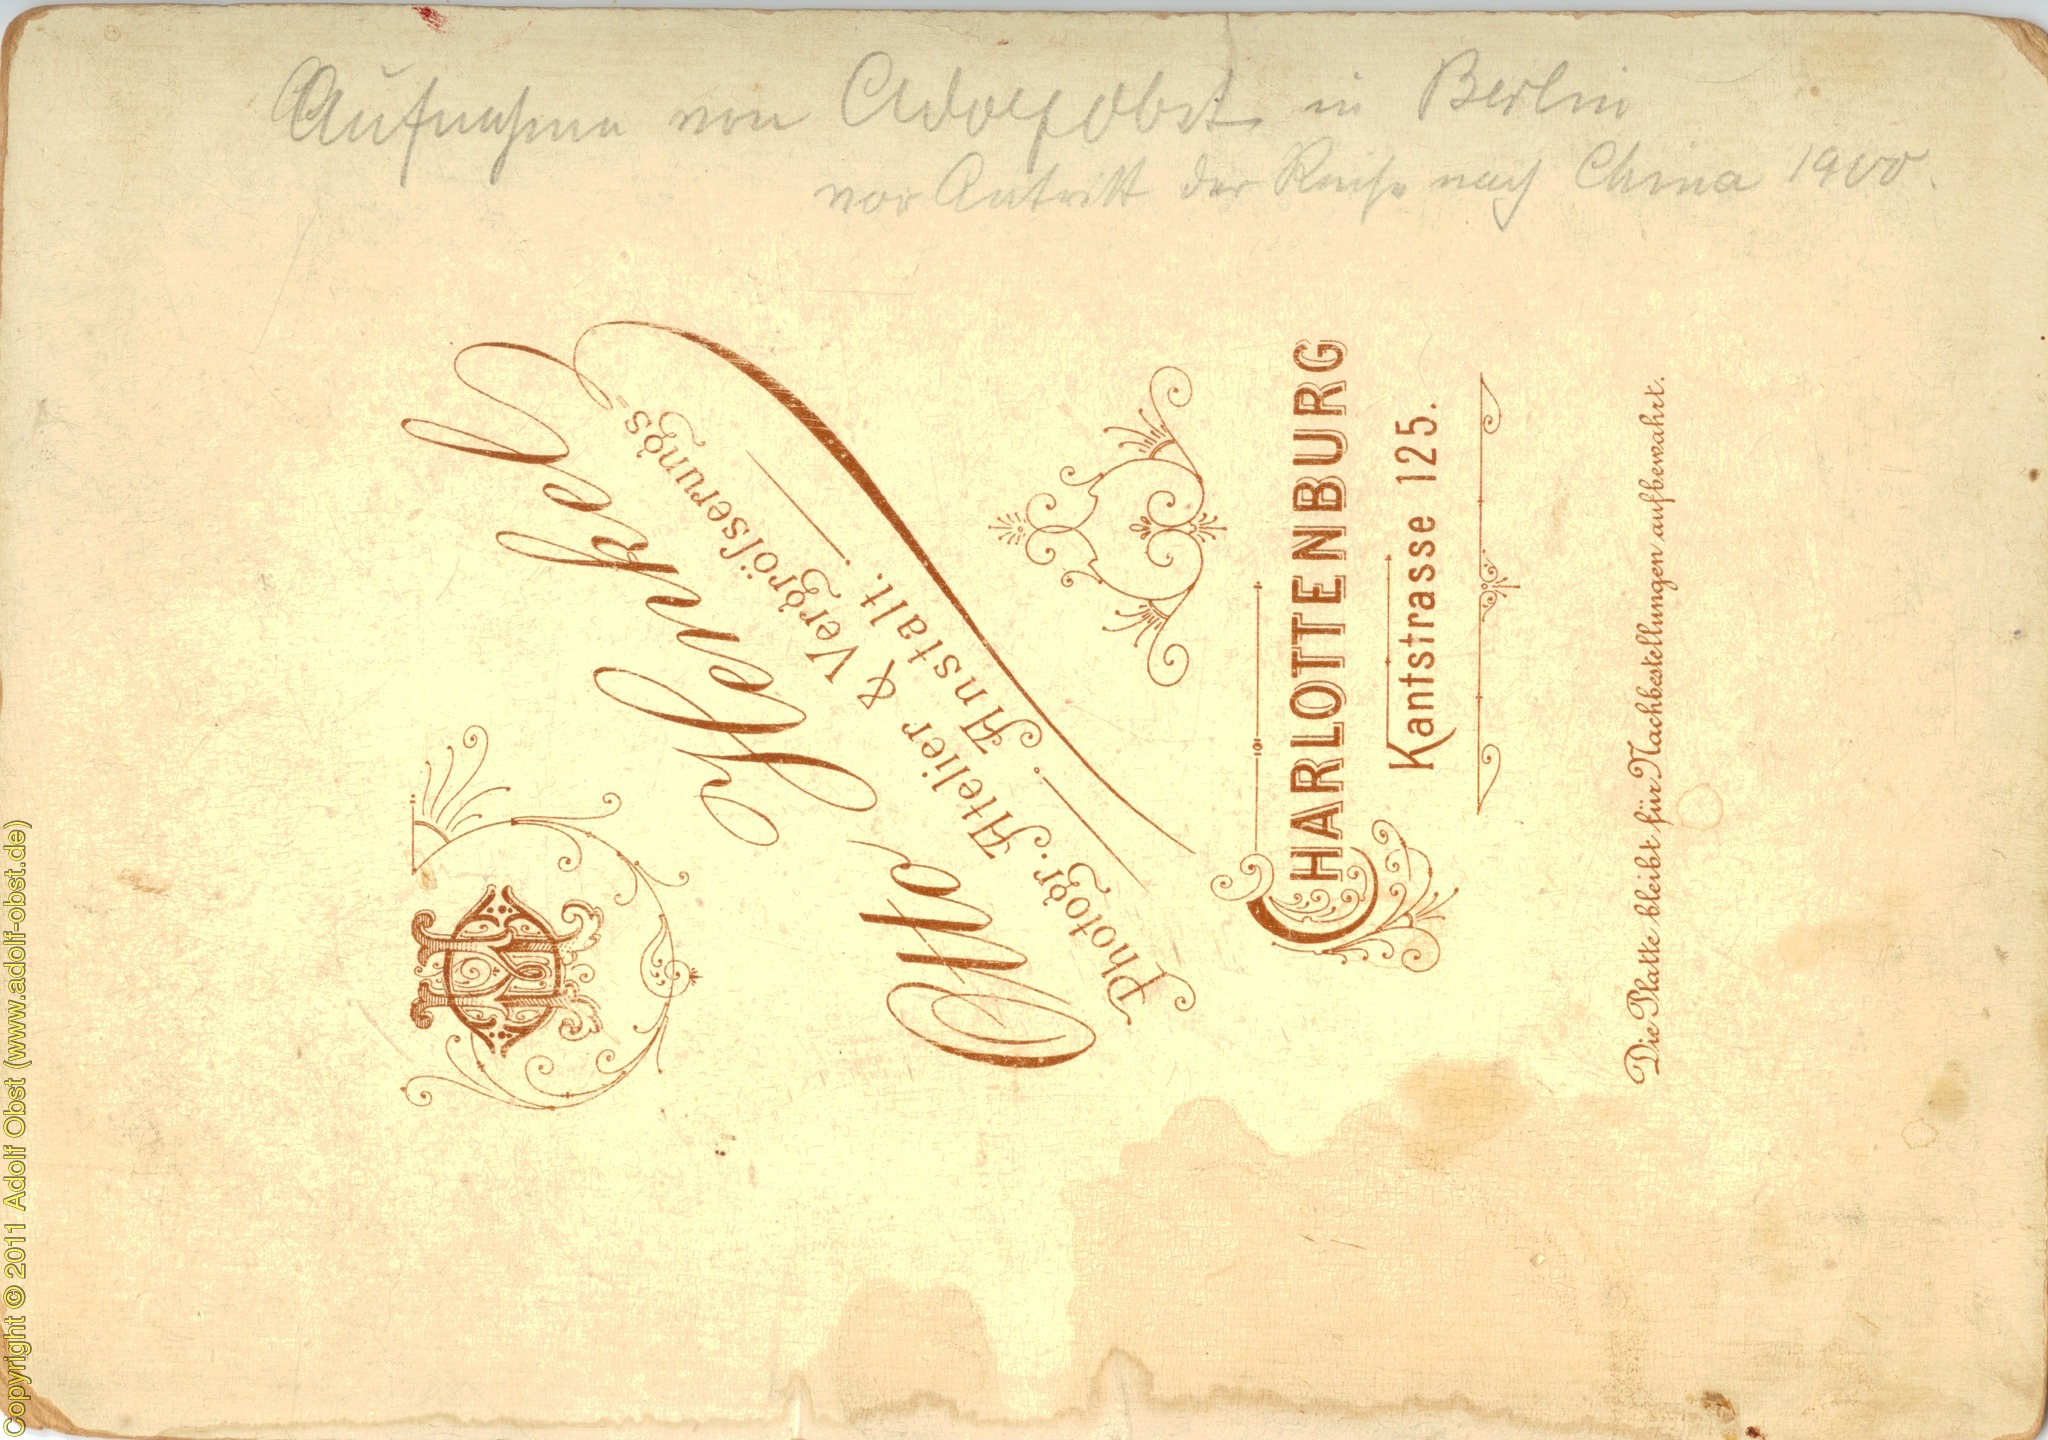 Aufnahme von Adolf Obst in Berlin
vor Antritt der Reise nach China 1900.
Otto Henkel
Photogr. Atelier & Vergröſserungs-
Anstalt.
CHARLOTTENBURG
Kantstrasse 125.
Die Platte bleibt für Nachbestellungen aufbewahrt.
Copyright © 2011 Adolf Obst (www.adolf-obst.de)